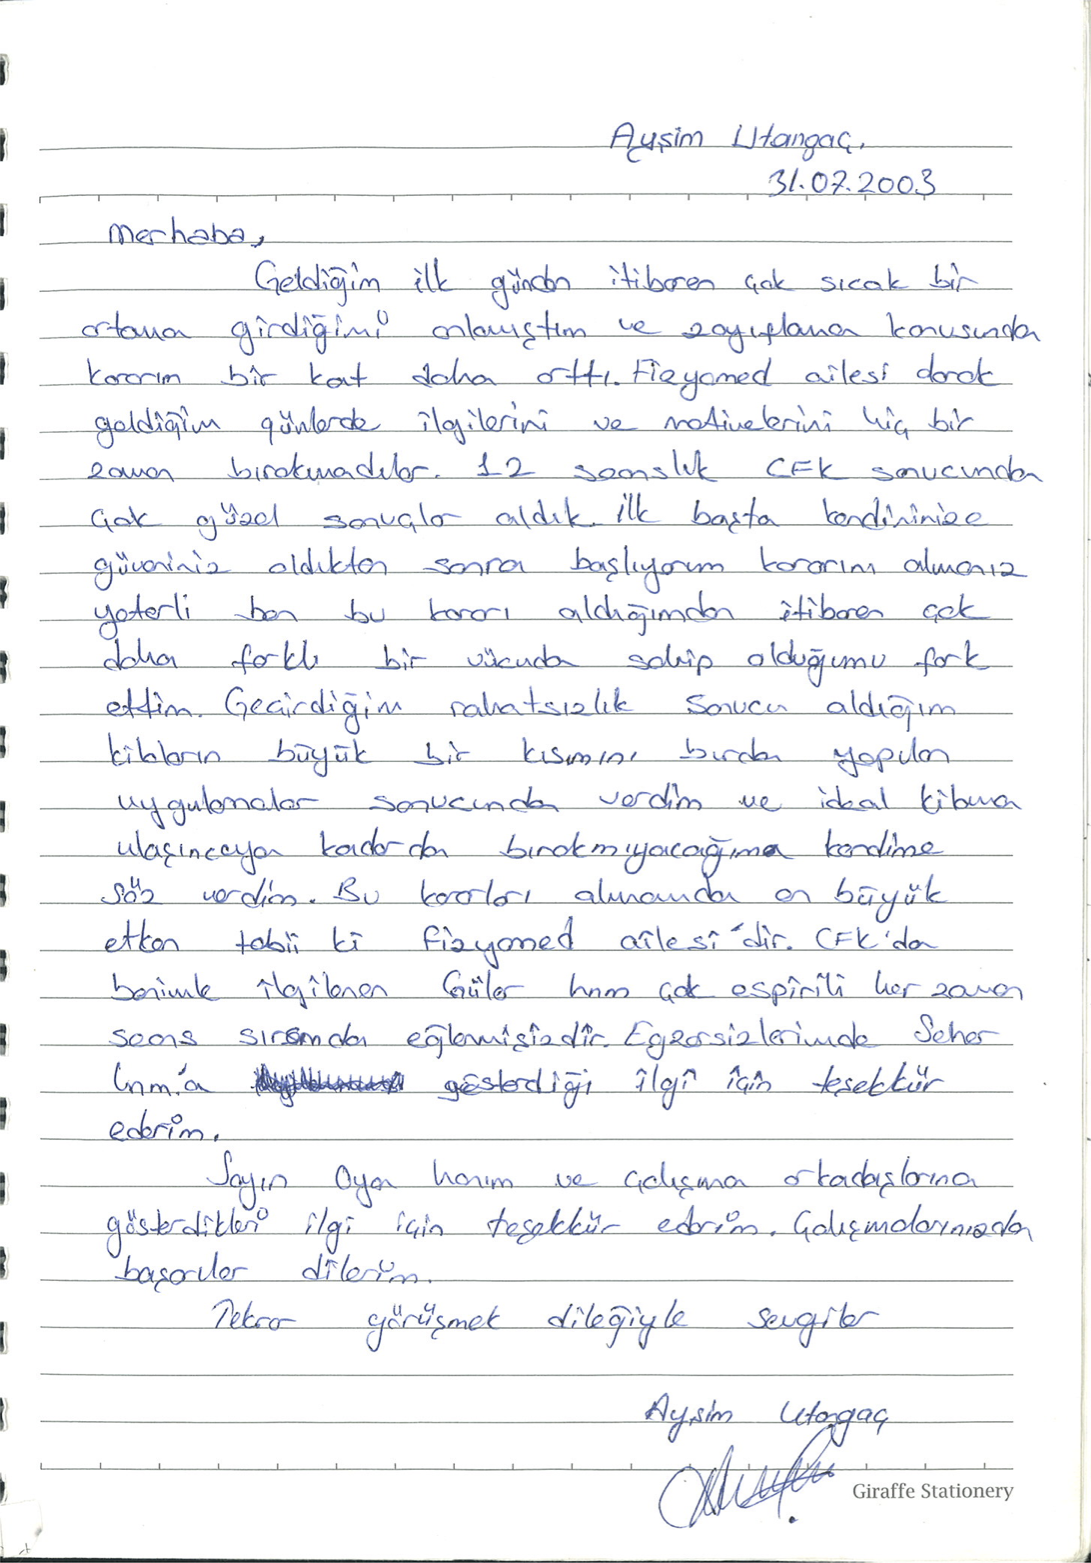 Ayşim Utangaç.
31.07.2003
Merhaba,
Geldiğim ilk günden itibaren çok sıcak bir
ortama girdiğimi anlamıştım ve zayıflama konusunda
kararım bir kat daha arttı. Fizyomed ailesi olarak
geldiğim günlerde ilgilerini ve motivelerini hiç bir
zaman bırakmadılar. 12 seanslık CFK sonucunda
çok güzel sonuçlar aldık. ilk başta kendininize
güveniniz oldukton sonra başlıyorum kararını almanız
yeterli ben bu kararı aldığımdan itibaren çok
daha farklı bir vücuda sahip olduğumu fark
ettim. Geçirdiğim rahatsızlık sonucu aldığım
kiloların büyük bir kısmını burda yapılan
uygulamalar sonucunda verdim ve ideal kiloma
ulaşıncaya kadarda bırakmıyacağıma kendime
söz verdim. Bu kararları almamda en büyük
etken tabii ki Fizyomed ailesi'dir. CFK'da
benimle ilgilenen Güler hnm çok espirili her zaman
seans sırasında eğlenmişizdir. Egzersizlerimde Seher
hnm.'a gösterdiği ilgi için teşekkür
ederim.
Sayın Oya hanım ve çalışma arkadaşlarına
gösterdikleri ilgi için teşekkür ederim. Çalışmalarınızda
başarılar dilerim.
Tekrar görüşmek dileğiyle sevgiler
Ayşim Utangaç
Giraffe Stationery